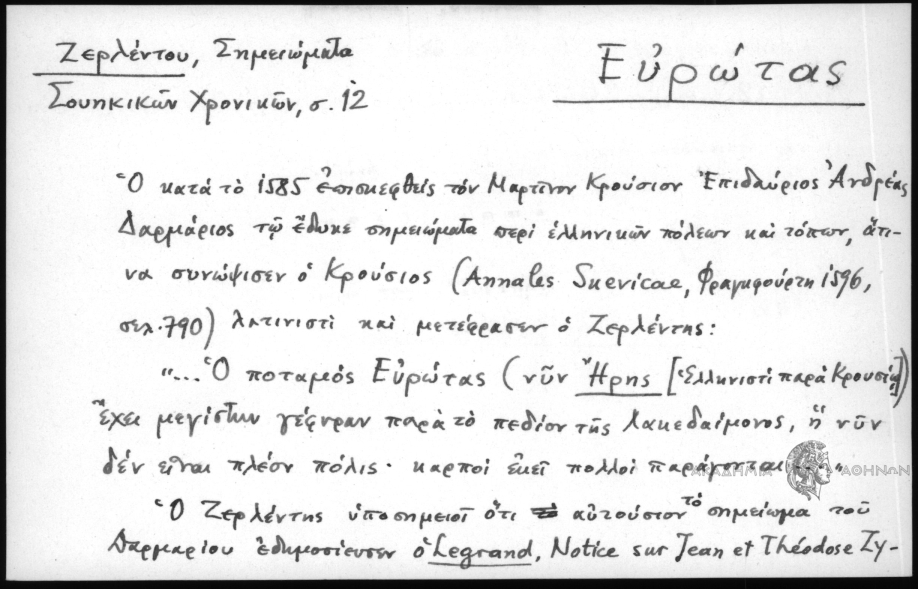 Ζερλέντου, Σημειώματα
Εὐρώτας
Σουηκικῶν Χρονικῶν, σ. 12
Ὁ κατὰ τὸ 1585 ἐπισκεφθεὶς τὸν Μαρτῖνον Κρούσιον Ἐπιδαύριος Ἀνδρέας
Δαρμάριος τῷ ἔδωκε σημειώματα περὶ ἑλληνικῶν πόλεων καὶ τόπων, ἅτι-
να συνώψισεν ὁ Κρούσιος (Annales Suevicae, Φραγκφούρτη 1596,
σελ. 790) λατινιστὶ καὶ μετέφρασεν ὁ Ζερλέντης:
"... Ὁ ποταμὸς Εὐρώτας (νῦν Ἤρης [Ἑλληνιστὶ παρὰ Κρουσίῳ])
ἔχει μεγίστην γέφυραν παρὰ τὸ πεδίον τῆς Λακεδαίμονος, ἣ νῦν
δὲν εἶναι πλέον πόλις· καρποὶ ἐκεῖ πολλοὶ παράγονται ... "
ΑΚΑΔΗΜΙΑ ΑΘΗΝΩΝ
Ὁ Ζερλέντης ὑποσημειοῖ ὅτι τὸ αὐτούσιον τὸ σημείωμα τοῦ
Δαρμαρίου ἐδημοσίευσεν ὁ Legrand, Notice sur Jean et Théodose Zy-